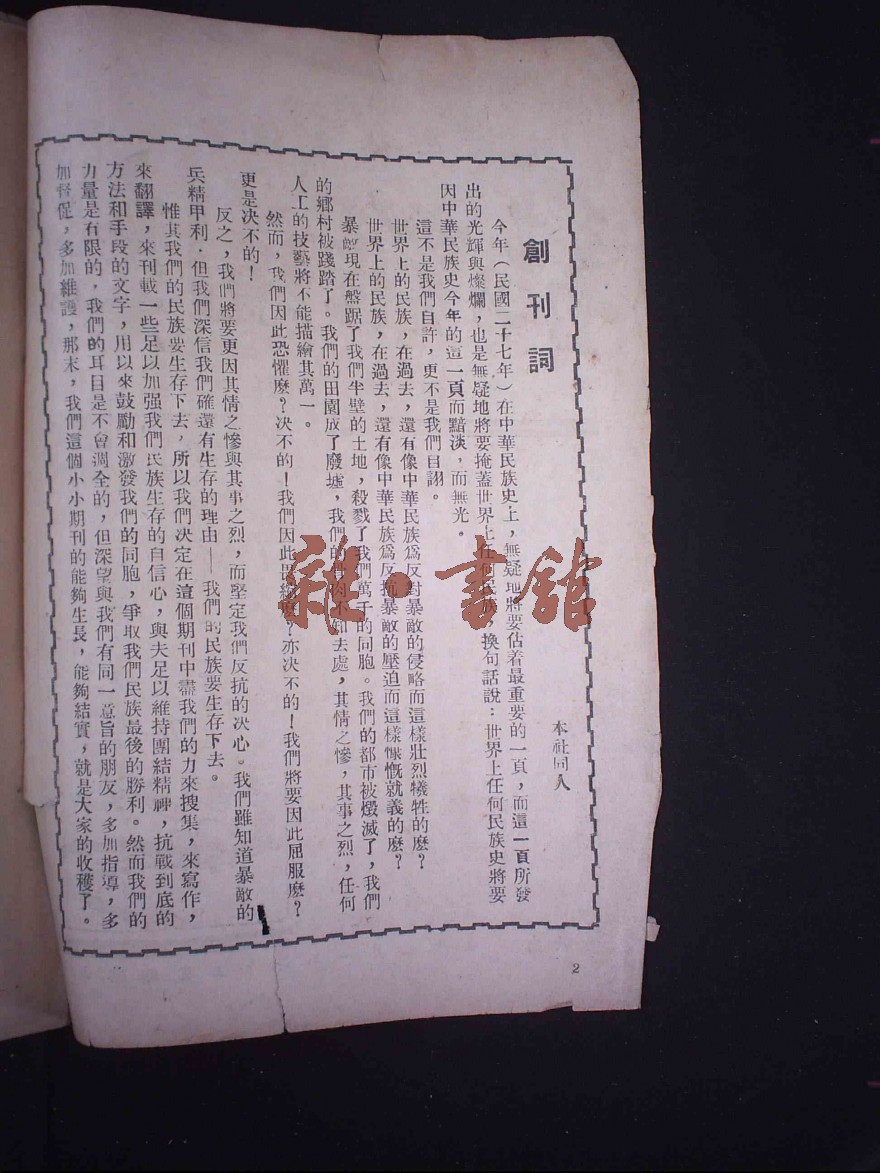 創刊詞
本社同人
今年（民國二十七年）在中華民族史上，無疑地將要佔着最重要的一頁，而這一頁所發
出的光輝與燦爛，也是無疑地將要掩蓋世界上任何民族，換句話說：世界上任何民族史將要
因中華民族史今年的這一頁而黯淡，而無光。
這不是我們自許，更不是我們自詡。
世界上的民族，在過去，還有像中華民族爲反對暴敵的侵略而這樣壯烈犧牲的麼？
世界上的民族，在過去，還有像中華民族爲反抗暴敵的壓迫而這樣慷慨就義的麼？
暴敵現在盤踞了我們半壁的土地，殺戮了我們萬千的同胞。我們的都市被燬滅了，我們
的鄉村被踐踏了。我們的田園成了廢墟，我們的骨肉不知去處，其情之慘，其事之烈，任何
人工的技藝將不能描繪其萬一。
然而，我們因此恐懼麼？决不的！我們因此畏縮麼？亦决不的！我們將要因此屈服麼？
更是决不的！
反之，我們將要更因其情之慘與其事之烈，而堅定我們反抗的决心。我們雖知道暴敵的
兵精甲利．但我們深信我們確還有生存的理由——我們的民族要生存下去。
惟其我們的民族要生存下去，所以我們決定在這個期刊中盡我們的力來搜集，來寫作，
來翻譯，來刊載一些足以加强我們民族生存的自信心，與夫足以維持團結精神，抗戰到底的
方法和手段的文字，用以來鼓勵和激發我們的同胞，爭取我們民族最後的勝利。然而我們的
力量是有限的，我們的耳目是不會週全的，但深望與我們有同一意旨的朋友，多加指導，多
加督促，多加維護，那末，我們這個小小期刊的能夠生長，能夠結實，就是大家的收穫了。
2
雜·書館